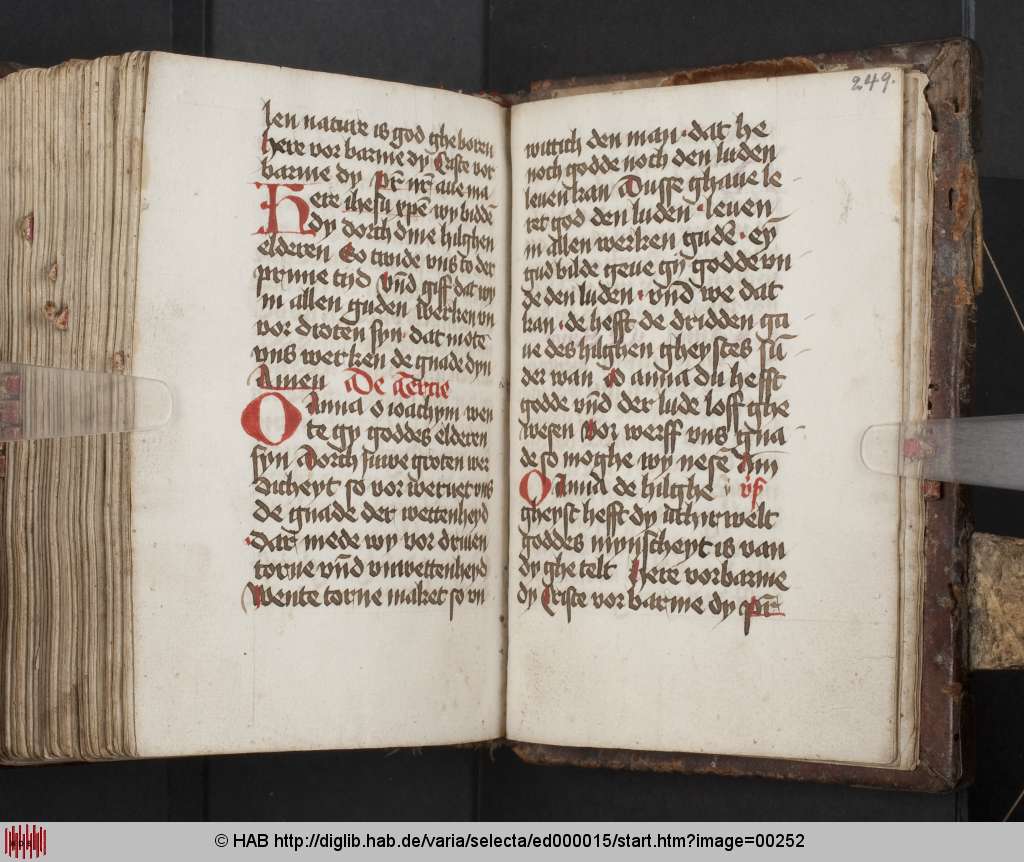 len nature is god ghe boren
here vor barme dy Criste vor
barme dy pr̄ nr̄ aue ma
Here ihesu xp̄e wy biddē
dy dorch dine hilghen
elderen So twide vns to der
prime tijd Vnd giff dat wy
in allen guden werken vn
vor droten syn · dat mote
vns werken de gnade dyn
Amen De Tercie
O Anna o ioachym wen
te gy goddes elderen
syn Dorch iuwe groten wer
dicheyt so vor weruet vns
de gnade der wettenheyd
Dar mede wy vor driuen
torne vnd vnwettenheyd
Wente torne maket so vn
249.
wittich den man · dat he
noch godde noch den luden
leuen kan Dusse ghaue le
ret god den luden · leuen
in allen werken gudē · eȳ
gud bilde geue gy godde vn
de den luden · vnd we dat
kan · de hefft de dridden ga
ue des hilghen gheystes sū
der wan O anna du hefft
godde vnd der lude loff ghe
wesen Vor werff vns gna
de so moghe wy nesē Am
O Anna de hilghe vs
gheyst hefft dy vthir welt
goddes mynscheyt is van
dy ghe telt Here vorbarme
dy Criste vor barme dy pr̄
© HAB http://diglib.hab.de/varia/selecta/ed000015/start.htm?image=00252